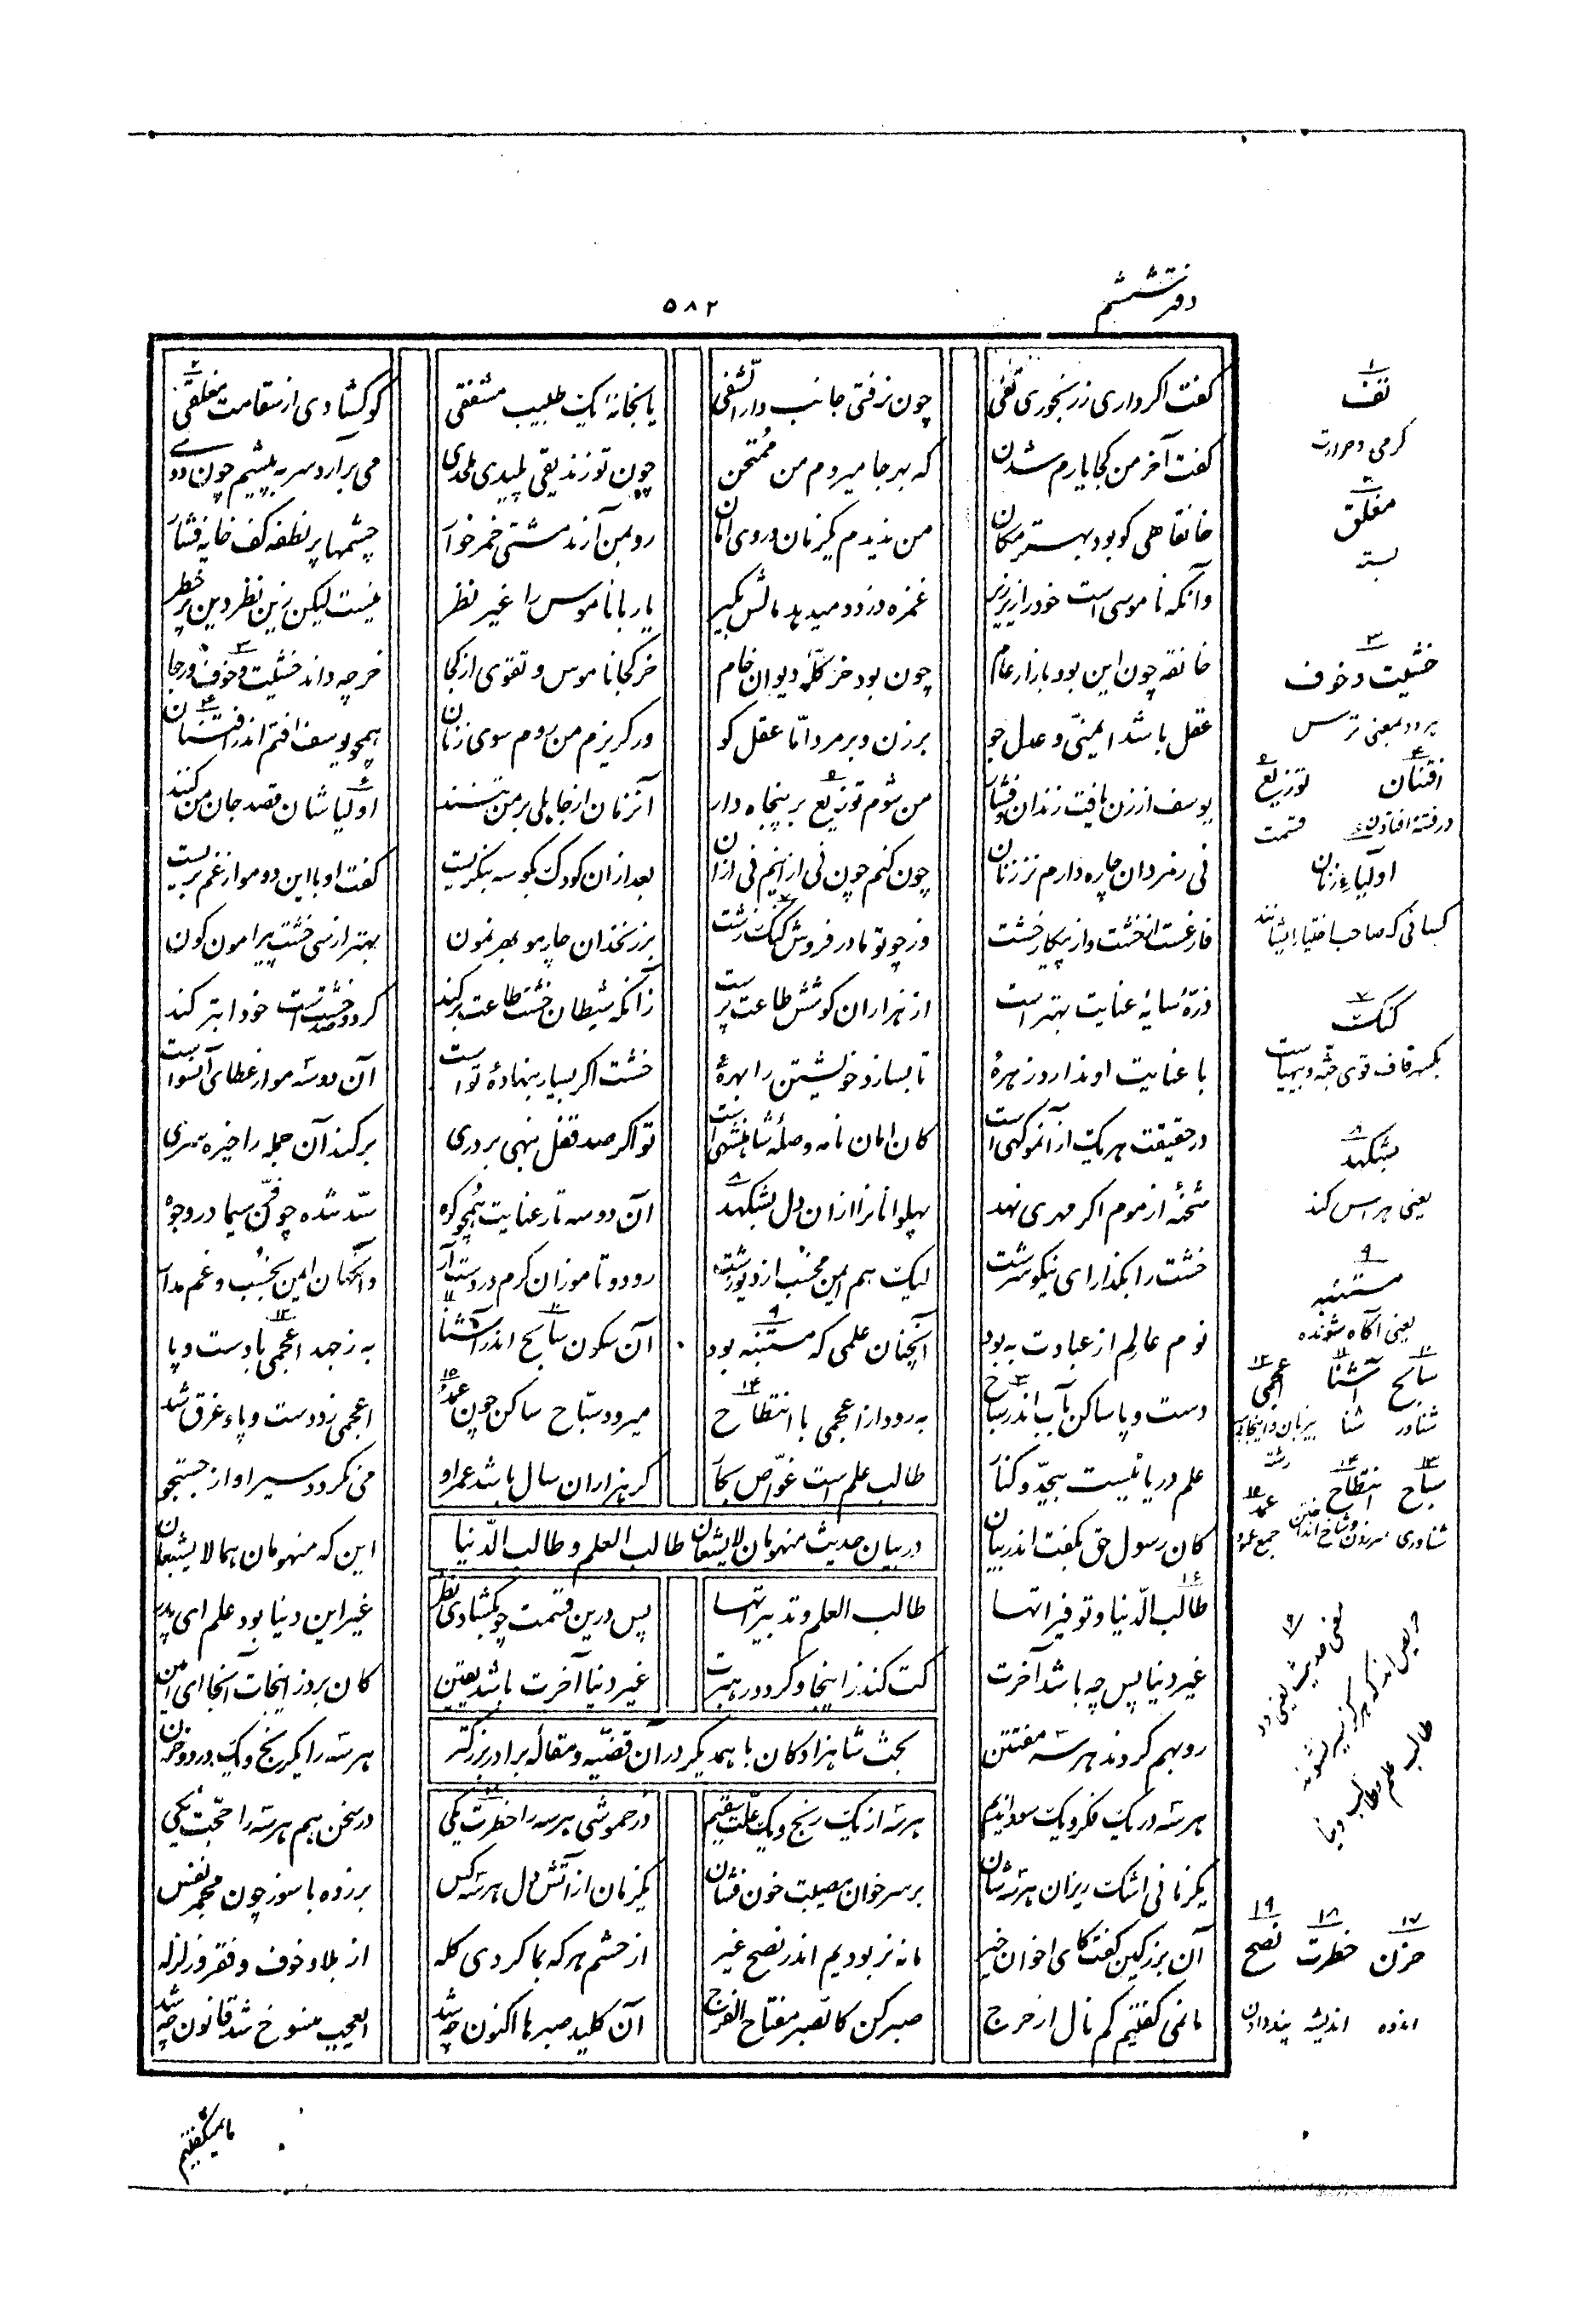 دفتر ششم
۵۸۲
گفت اگر داری ز رنجوری تفی چون نرفتی جانب دار الشفی یا بخانهٔ یک طبیب مشفقی کو گشادی از سقامت مغلقی
گفت آخر من کجا یارم شدن که بهر جا میروم من ممتحن چون تو زندیقی پلیدی ملحدی می برآرد سر به پیشم چون ددی
خانقاهی کو بود بهتر مکان من ندیدم یکزمان در وی امان رو بمن آرند مشتی خمر خوار چشمها پر نطفه کف خایه فشار
وانکه ناموسی است خود از زیر زیر غمزه دزدد میدهد مالش بکیر یار با ناموس را غیر نظر نیست لیکن زین نظر دین پر خطر
خانقه چون این بود بازار عام چون بود خر گله دیوان خام خر کجا ناموس و تقوی از کجا خر چه داند خشیت و خوف و رجا
عقل باشد ایمنی و عدل جو بر زن و بر مرد امّا عقل کو ور گریزم من روم سوی زنان همچو یوسف افتم اندر افتنان
یوسف از زن یافت زندان و فشار من شوم توزیع بر پنجاه دار آنزنان از جاهلی بر من تنند اولیاشان قصد جان من کنند
نی ز مردان چاره دارم نز زنان چون کنم چون نی ازینم نی از ان بعد از ان کودک بکوسه بنگریست گفت او با این دو مو از غم بریست
فارغست از خشت و از پیکار خشت وز چو تو مادر فروش کنک زشت بر زنخدان چار مو بهر نمون بهتر از سی خشت پیرامون کون
ذرّهٔ سایهٔ عنایت بهتر است از هزاران کوشش طاعت پرست زانکه شیطان خشت طاعت بر کند گر دو صد خشتست خود ابتر کند
با عنایت او ندارد زهرهٔ تا بسازد خویشتن را بهرهٔ خشت اگر بسیار بنهادهٔ تو است آن دو سه مو از عطای آنسو است
در حقیقت هر یک از آن مو کهی است کان امان نامه و صلهٔ شاهنشهی است تو اگر صد قفل بنهی بر دری بر کند آن جمله را خیره سری
شحنهٔ از موم اگر مهری نهد پهلوانان را از ان دل بشکهد آن دو سه تار عنایت همچو کوه سدّ شده چون فرّ سیما در وجوه
خشت را مگذار ای نیکو سرشت لیک هم ایمن مخسب از دیو زشت رو دو تا مو زان کرم در دست آر وانگهان ایمن بخسب و غم مدار
نوم عالم از عبادت به بود آنچنان علمی که مستنبه بود آن سکون سابح اندر آشنا به ز جهد اعجمی با دست و پا
دست و پا ساکن بآب اندر سباح به رود از اعجمی با انتطاح میرود سبّاح ساکن چون عمد اعجمی زد دست و پا و غرق شد
علم دریائیست بیحدّ و کنار طالب علم است غوّاص بحار گر هزاران سال باشد عمر او می نگردد سیر او از جستجو
کان رسول حق بگفت اندر بیان این که منهومان هما لا یشبعان
در بیان حدیث منهومان لا یشبعان طالب العلم و طالب الدّنیا
طالب الدّنیا و توفیراتها طالب العلم و تدبیراتها پس درین قسمت چو بگشادی نظر غیر این دنیا بود علم ای پدر
غیر دنیا پس چه باشد آخرت کت کند ز اینجا و گردد رهبرت غیر دنیا آخرت باشد یقین کان برد ز اینجات آنجا ای امین
رو بهم کردند هر سه مفتتن هر سه را یک رنج و یک درد و حزن
بحث شاهزادگان با همدیگر در آن قضیه و مقالهٔ برادر بزرگتر
هر سه در یک فکر و یک سودا ندیم هر سه از یک رنج و یک علّت سقیم در خموشی هر سه را خطرت یکی در سخن هم هر سه را حجّت یکی
یکزمانی اشک ریزان هر سه شان بر سر خوان مصیبت خون فشان یکزمان از آتش دل هر سه کس بر زده با سوز چون مجمر نفس
آن بزرگین گفت کای اخوان خیر ما نه نر بودیم اندر نصح غیر از حشم هر که بما کردی گله از بلا و خوف و فقر و زلزله
ما نمی گفتیم کم نال از حرج صبر کن کالصّبر مفتاح الفرج آن کلید صبر ما اکنون چه شد ایعجب منسوخ شد قانون چه شد
مانمیگفتیم
۱ تف
گرمی و حرارت
۲ مغلق
بسته
۳ خشیت و خوف
هر دو بمعنی ترس
۴ افتنان ۵ توزیع
در فتنه افتادن قسمت
۶ اولیاء زنان
کسانی که صاحب اختیار ایشانند
۷ کنک
بکسر قاف قوی جثه و بیهیات
۸ بشکهد
یعنی هراس کند
۹ مستنبه
یعنی آگاه شونده
۱۰ سابح ۱۱ آشنا ۱۲ اعجمی
شناور شنا
۱۳ سباح ۱۴ انتطاح ۱۵ عمد
شناوری جمع عمود
۱۶
حریص اند که هرگز سیر نشوند
طالب علم و طالب دنیا
۱۷ حزن ۱۸ خطرت ۱۹ نصح
اندوه اندیشه پند دادن